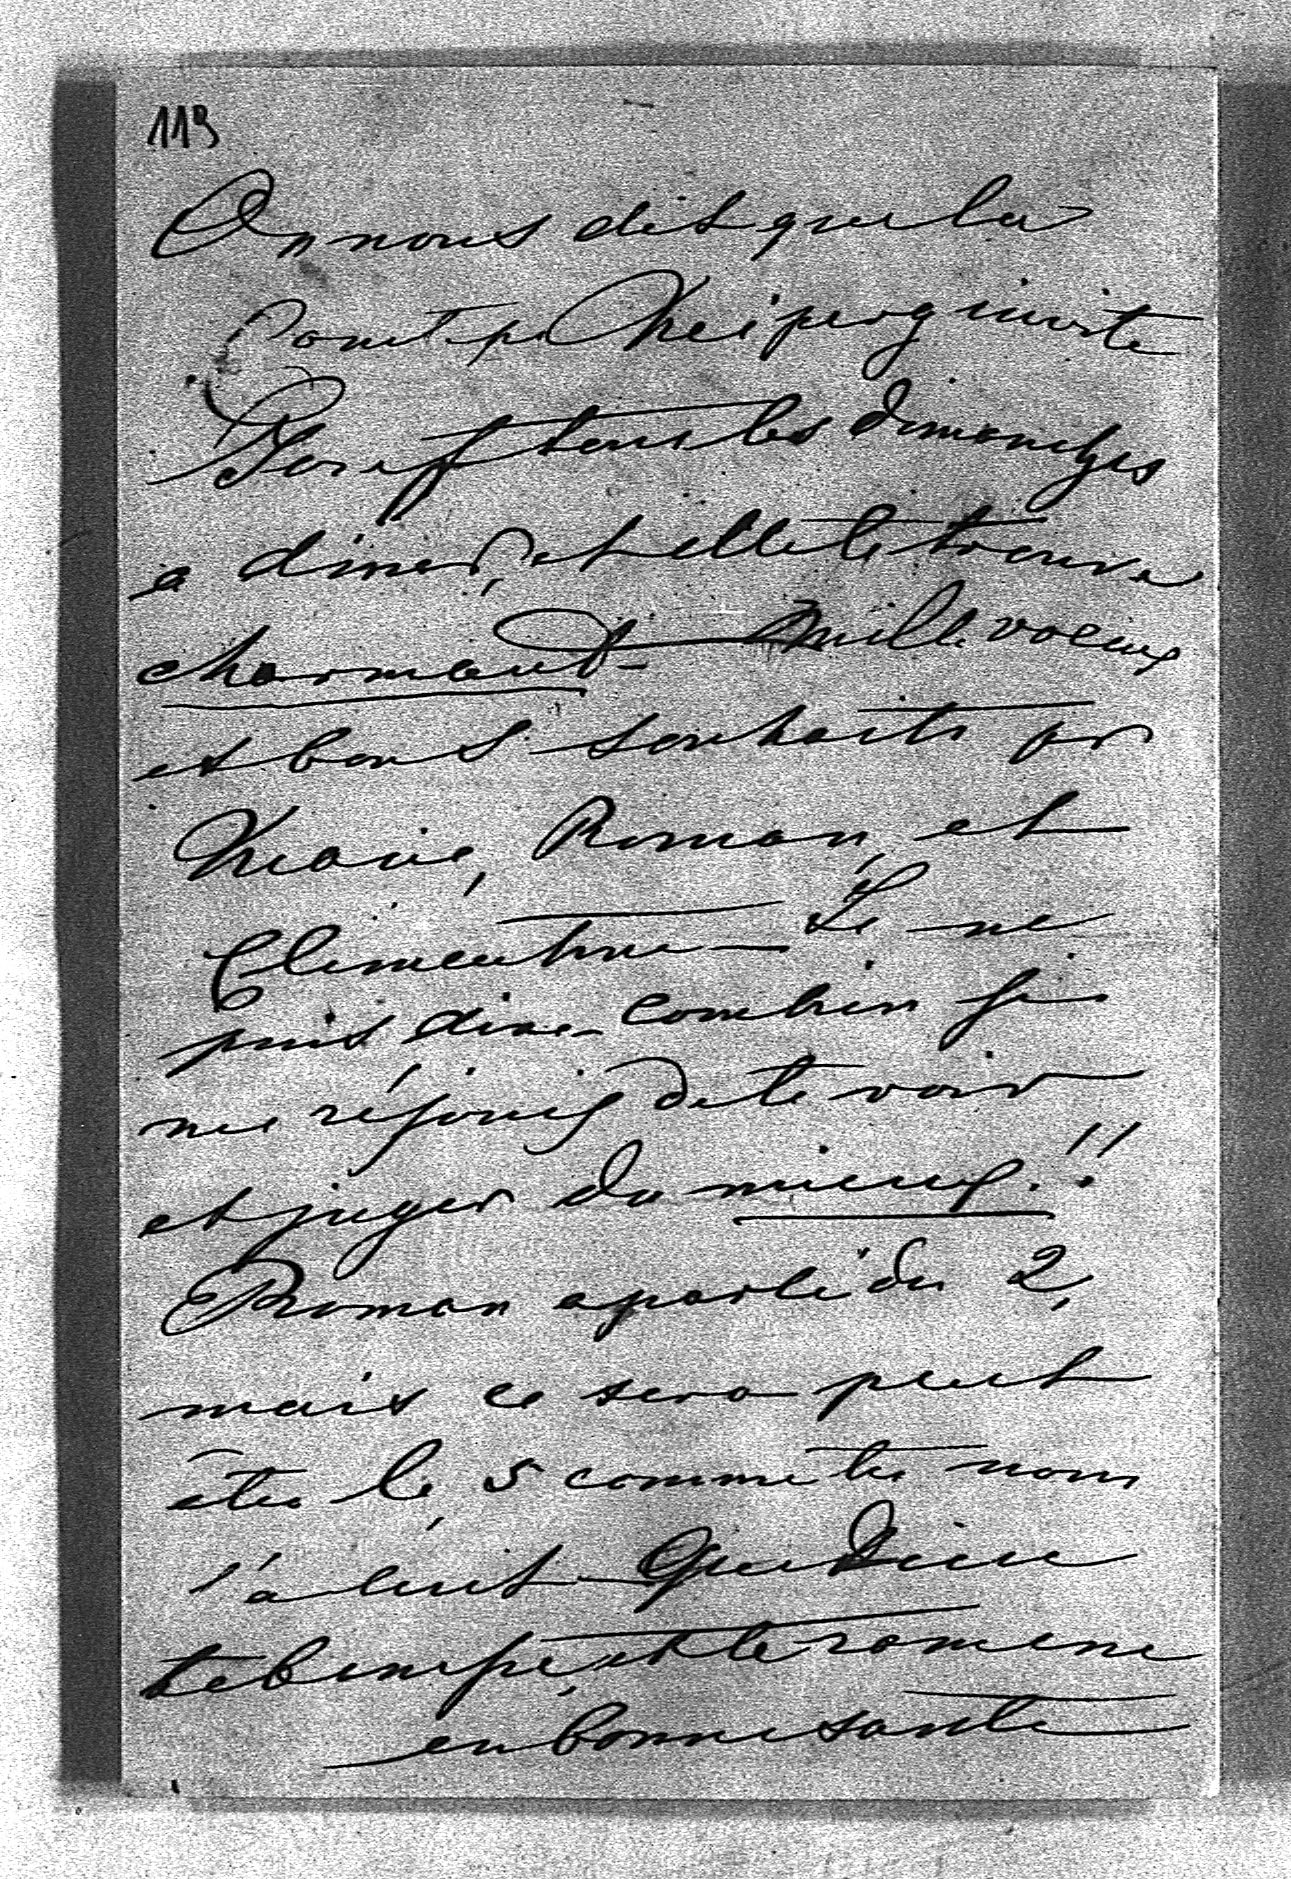 113
On nous dit que la
Comtesse Neiperg invite
Joseph tous les dimanches
a diner, et elle le trouve
charmant - Mille voeux
et bons souhaits pr
Marie, Roman, et
Clementine - Je ne
puis dire combien je
me réjouis de te voir
et juger du mieux!!
Roman a parlé du 2,
mais ce sera peut
être le 5 comme tu nous
l'a écrit - Que Dieu
te benisse, et te ramene
en bonne santé